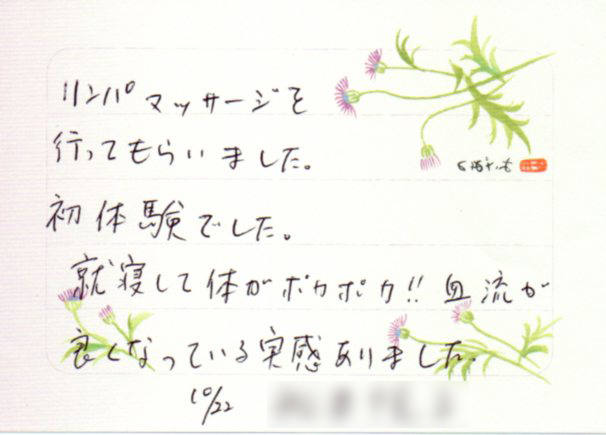 リンパマッサージを
行ってもらいました。
初体験でした。
就寝して体がポカポカ!! 血流が
良くなっている実感ありました。
10/22